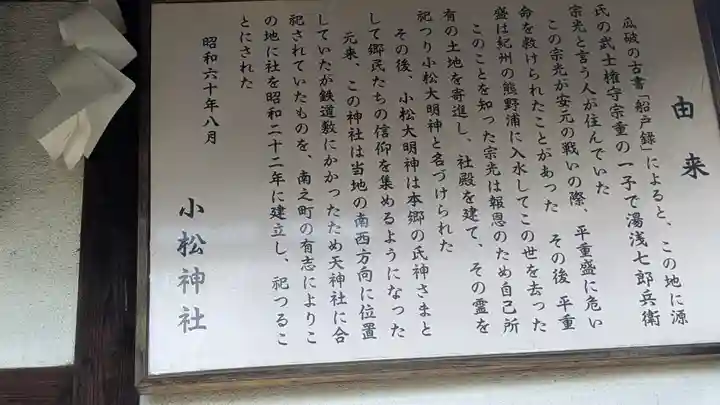 由来
瓜破の古書「船戸録」によると、この地に源
氏の武士権守宗重の一子で湯浅七郎兵衛
宗光と言う人が住んでいた
この宗光が安元の戦いの際、平重盛に危い
命を救けられたことがあった　その後　平重
盛は紀州の熊野浦に入水してこの世を去った
このことを知った宗光は報恩のため自己所
有の土地を寄進し、社殿を建て、その霊を
祀つり小松大明神と名づけられた
その後、小松大明神は本郷の氏神さまと
して郷民たちの信仰を集めるようになった
元来、この神社は当地の南西方向に位置
していたが鉄道敷にかかったため天神社に合
祀されていたものを、南之町の有志によりこ
の地に社を昭和二十二年に建立し、祀つるこ
とにされた
昭和六十年八月
小松神社